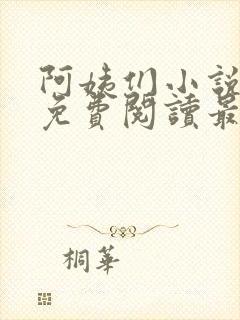 阿姨们小說
免費閱讀最
桐華